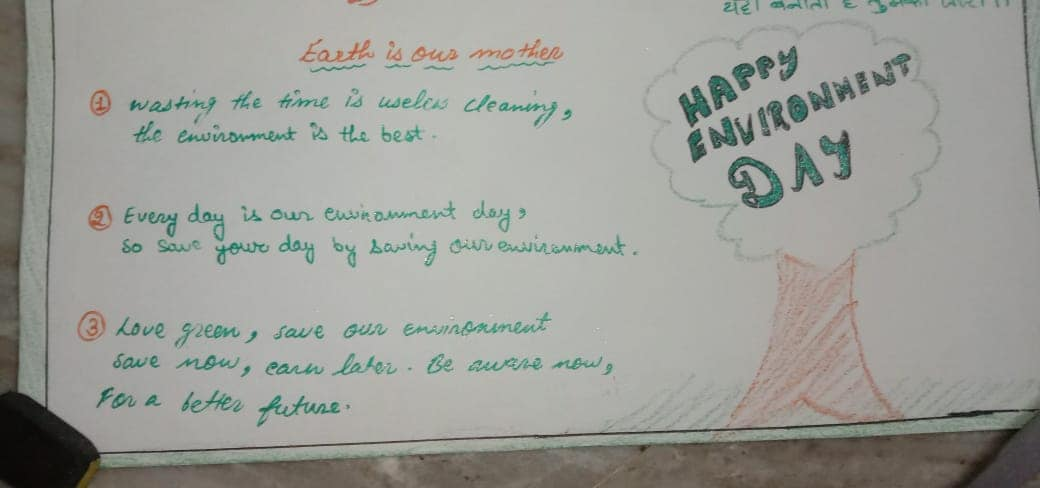 यही बनाता है
Earth is our mother
① wasting the time is useless cleaning,
the environment is the best.
② Every day is our environment day,
So save your day by saving our environment.
③ Love green, save our environment
Save now, earn later. Be aware now,
For a better future.
HAPPY
ENVIRONMENT
DAY